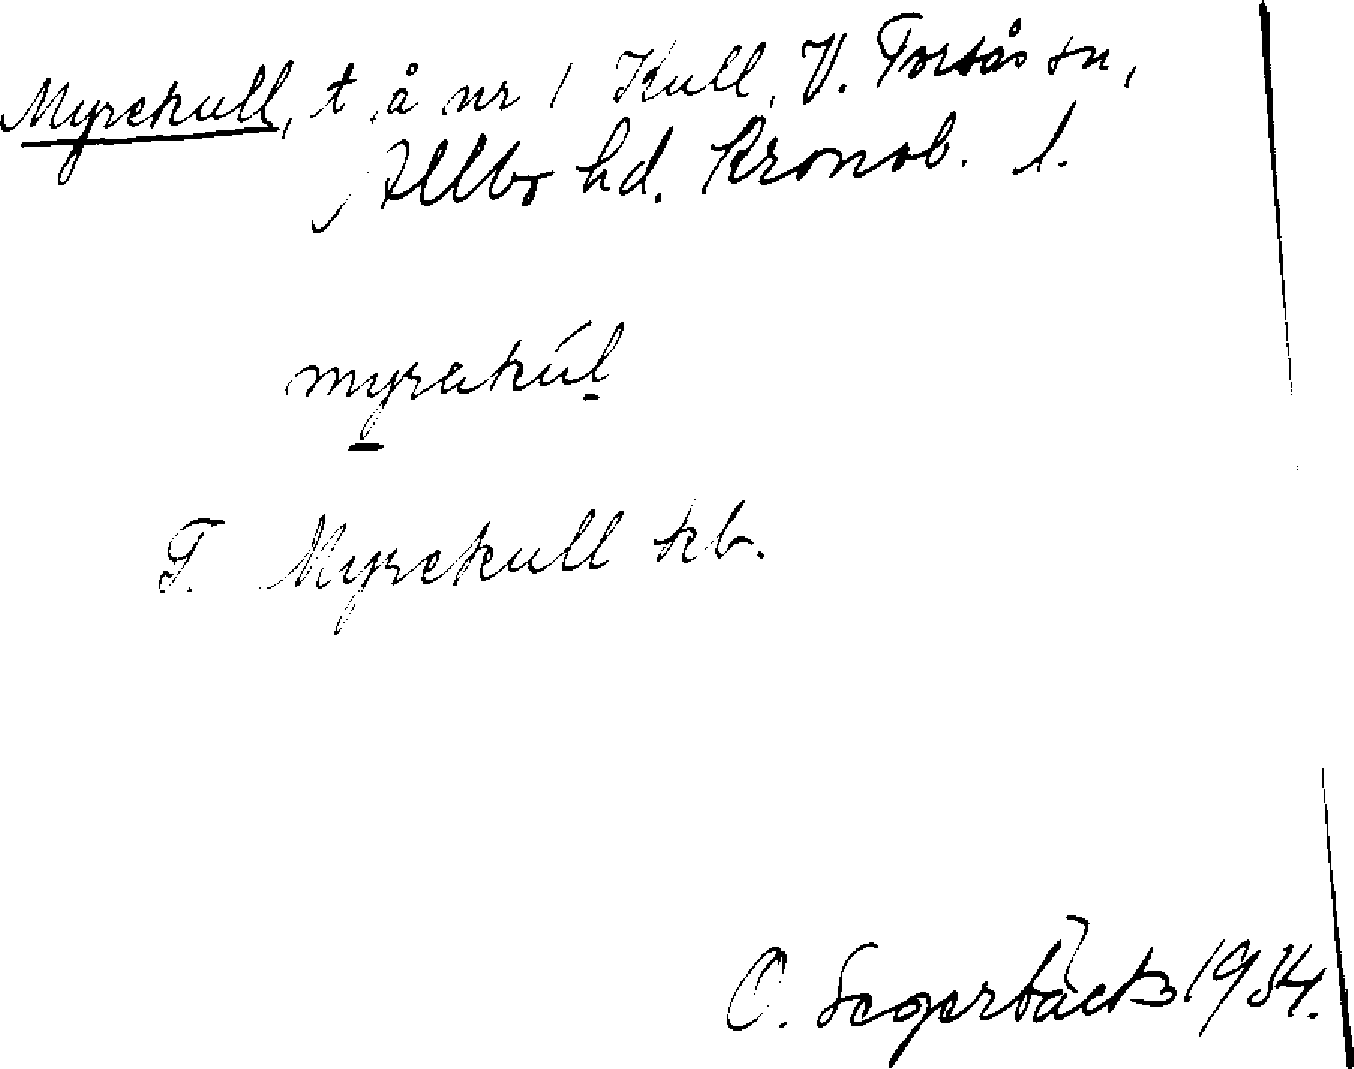 Myrekull, t å nr 1 Kull, V. Torsås sn,
Allbo hd. Kronob. l.
myrakúl
F. Myrekull kb.
O. Segerbäck 1934.